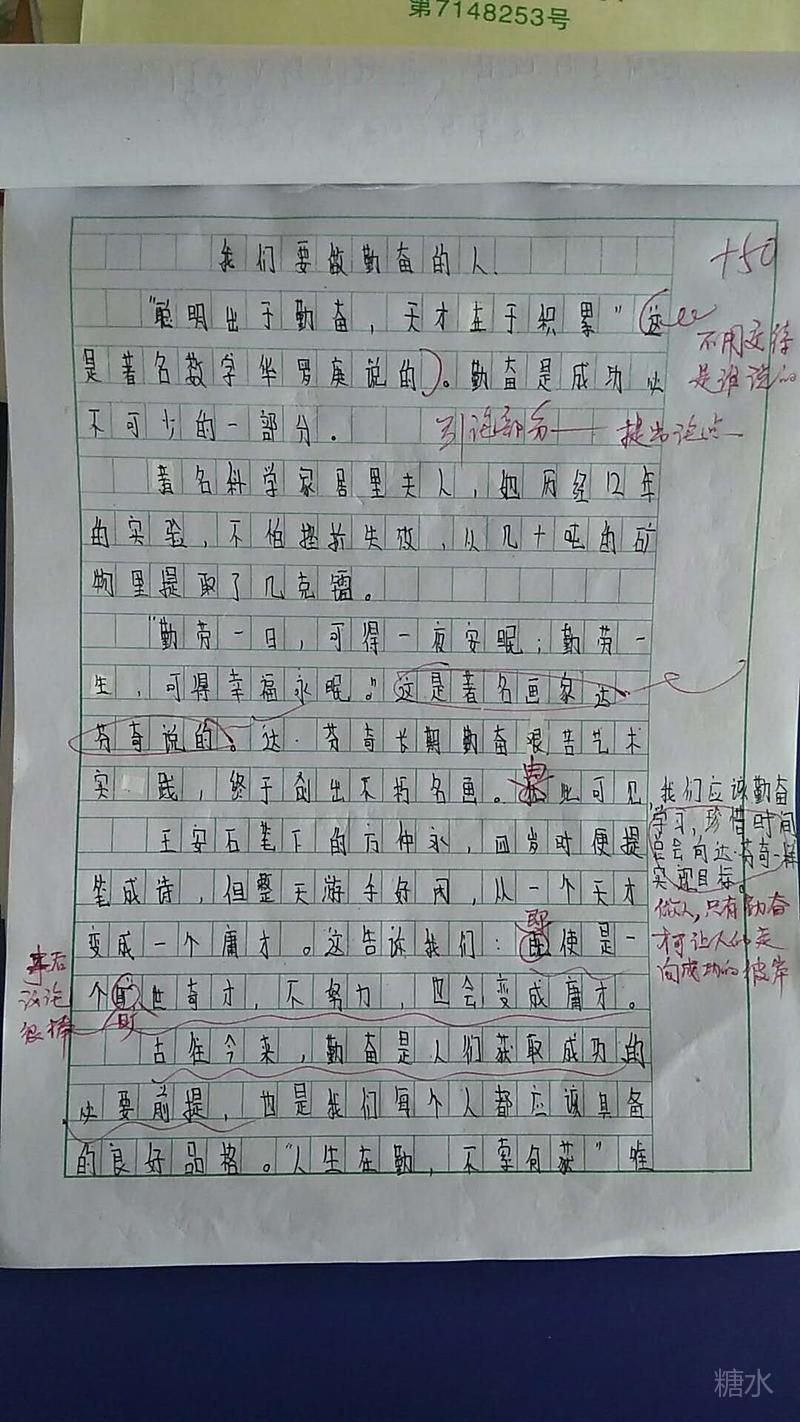 第7148253号
我们要做勤奋的人
+50
"聪明出于勤奋，天才在于积累"（这
是著名数字华罗庚说的）。勤奋是成功必
不用交待
是谁说的
不可少的一部分。
引论部分——提出论点
著名科学家居里夫人，她历经12年
的实验，不怕挫折失败，从几十吨的矿
物里提取了几克镭。
"勤劳一日，可得一夜安眠；勤劳一
生，可得幸福永眠。"这是著名画家达
芬奇说的。达·芬奇长期勤奋艰苦艺术
实践，终于创出不朽名画。由此可见
，我们应该勤奋
学习，珍惜时间
会向达·芬奇一样
实现目标。
做人，只有勤奋
才可让人们走
向成功的彼岸
王安石笔下的方仲永，四岁时便提
笔成诗，但整天游手好闲，从一个天才
变成一个庸才。这告诉我们：即使是一
个旷世奇才，不努力，也会变成庸才。
事后
议论
很棒
古往今来，勤奋是人们获取成功的
必要前提，也是我们每个人都应该具备
的良好品格。"人生在勤，不索何获"唯
糖水